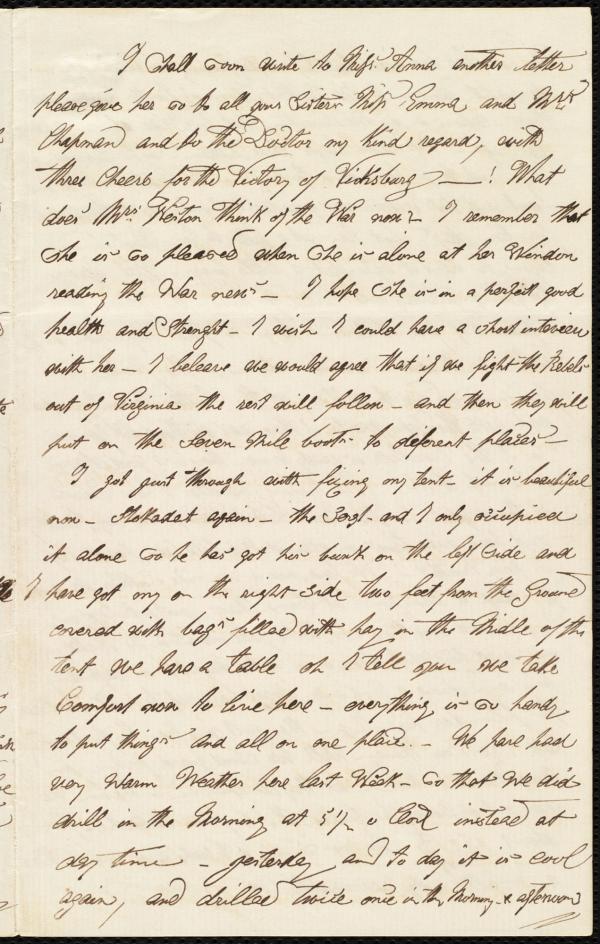 I shall soon write to Miss Anna another letter
please give her so to all your Sisters Miss Emma and Mrs
Chapman and to the Doctor my kind regard, with
three Cheers for the Victory of Vicksburg — ! What
does Mrs. Weston think of the War now? I remember that
she is so pleased when she is alone at her Window
reading the War news — I hope she is in a perfect good
health and Strenght — I wish I could have a short interview
with her — I beleave we would agree that if we fight the Rebels
out of Virginia the rest will follow — and then they will
put on the Seven Mile boots to diferent places —
I got just through with fixing my tent — it is beautiful
now — Stokadet again — the Sergt — and I only occupied
it alone so he has got his bunk on the left Side and
I have got my on the right side two feet from the Ground
covered with bags filled with hay in the Middle of the
tent we have a table oh I tell you we take
Comfort now to live here — everything is so handy
to put things and all on one place. — We have had
very Warm Weather here last Week — so that we did
drill in the Morning at 5 1/2 o Clock instead at
day time — yesterday and to day it is cool
again, and drilled twice once in the Morning & afternoon